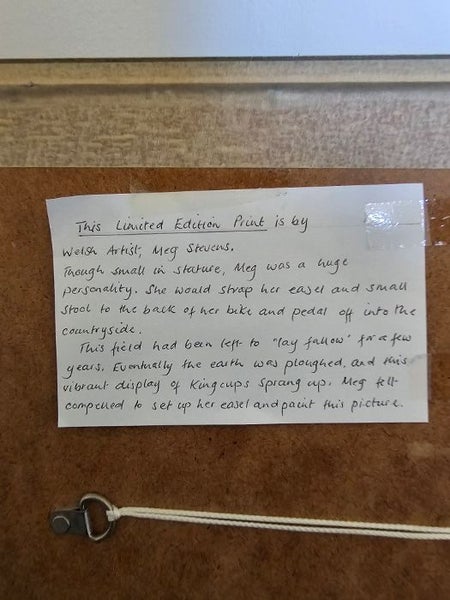 This Limited Edition Print is by
Welsh Artist, Meg Stevens.
Though small in stature, Meg was a huge
personality. She would strap her easel and small
stool to the back of her bike and pedal off into the
countryside.
This field had been left to "lay fallow" for a few
years. Eventually the earth was ploughed, and this
vibrant display of Kingcups sprang up. Meg felt
compelled to set up her easel and paint this picture.